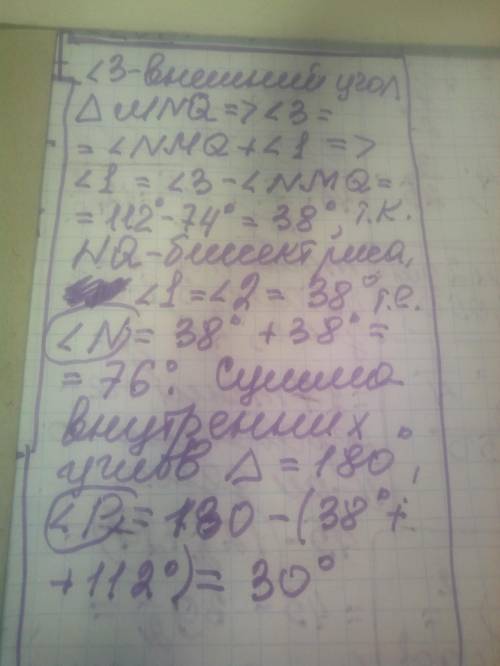 ∠3-внешний угол
△ MNQ => ∠3 =
= ∠NMQ + ∠1 =>
∠1 = ∠3 - ∠NMQ =
= 112° - 74° = 38°, т.к.
NQ - биссектриса,
∠1 = ∠2 = 38° т.е.
∠N = 38° + 38° =
= 76°. Сумма
внутренних
углов △ = 180°,
∠P = 180 - (38° +
+ 112°) = 30°